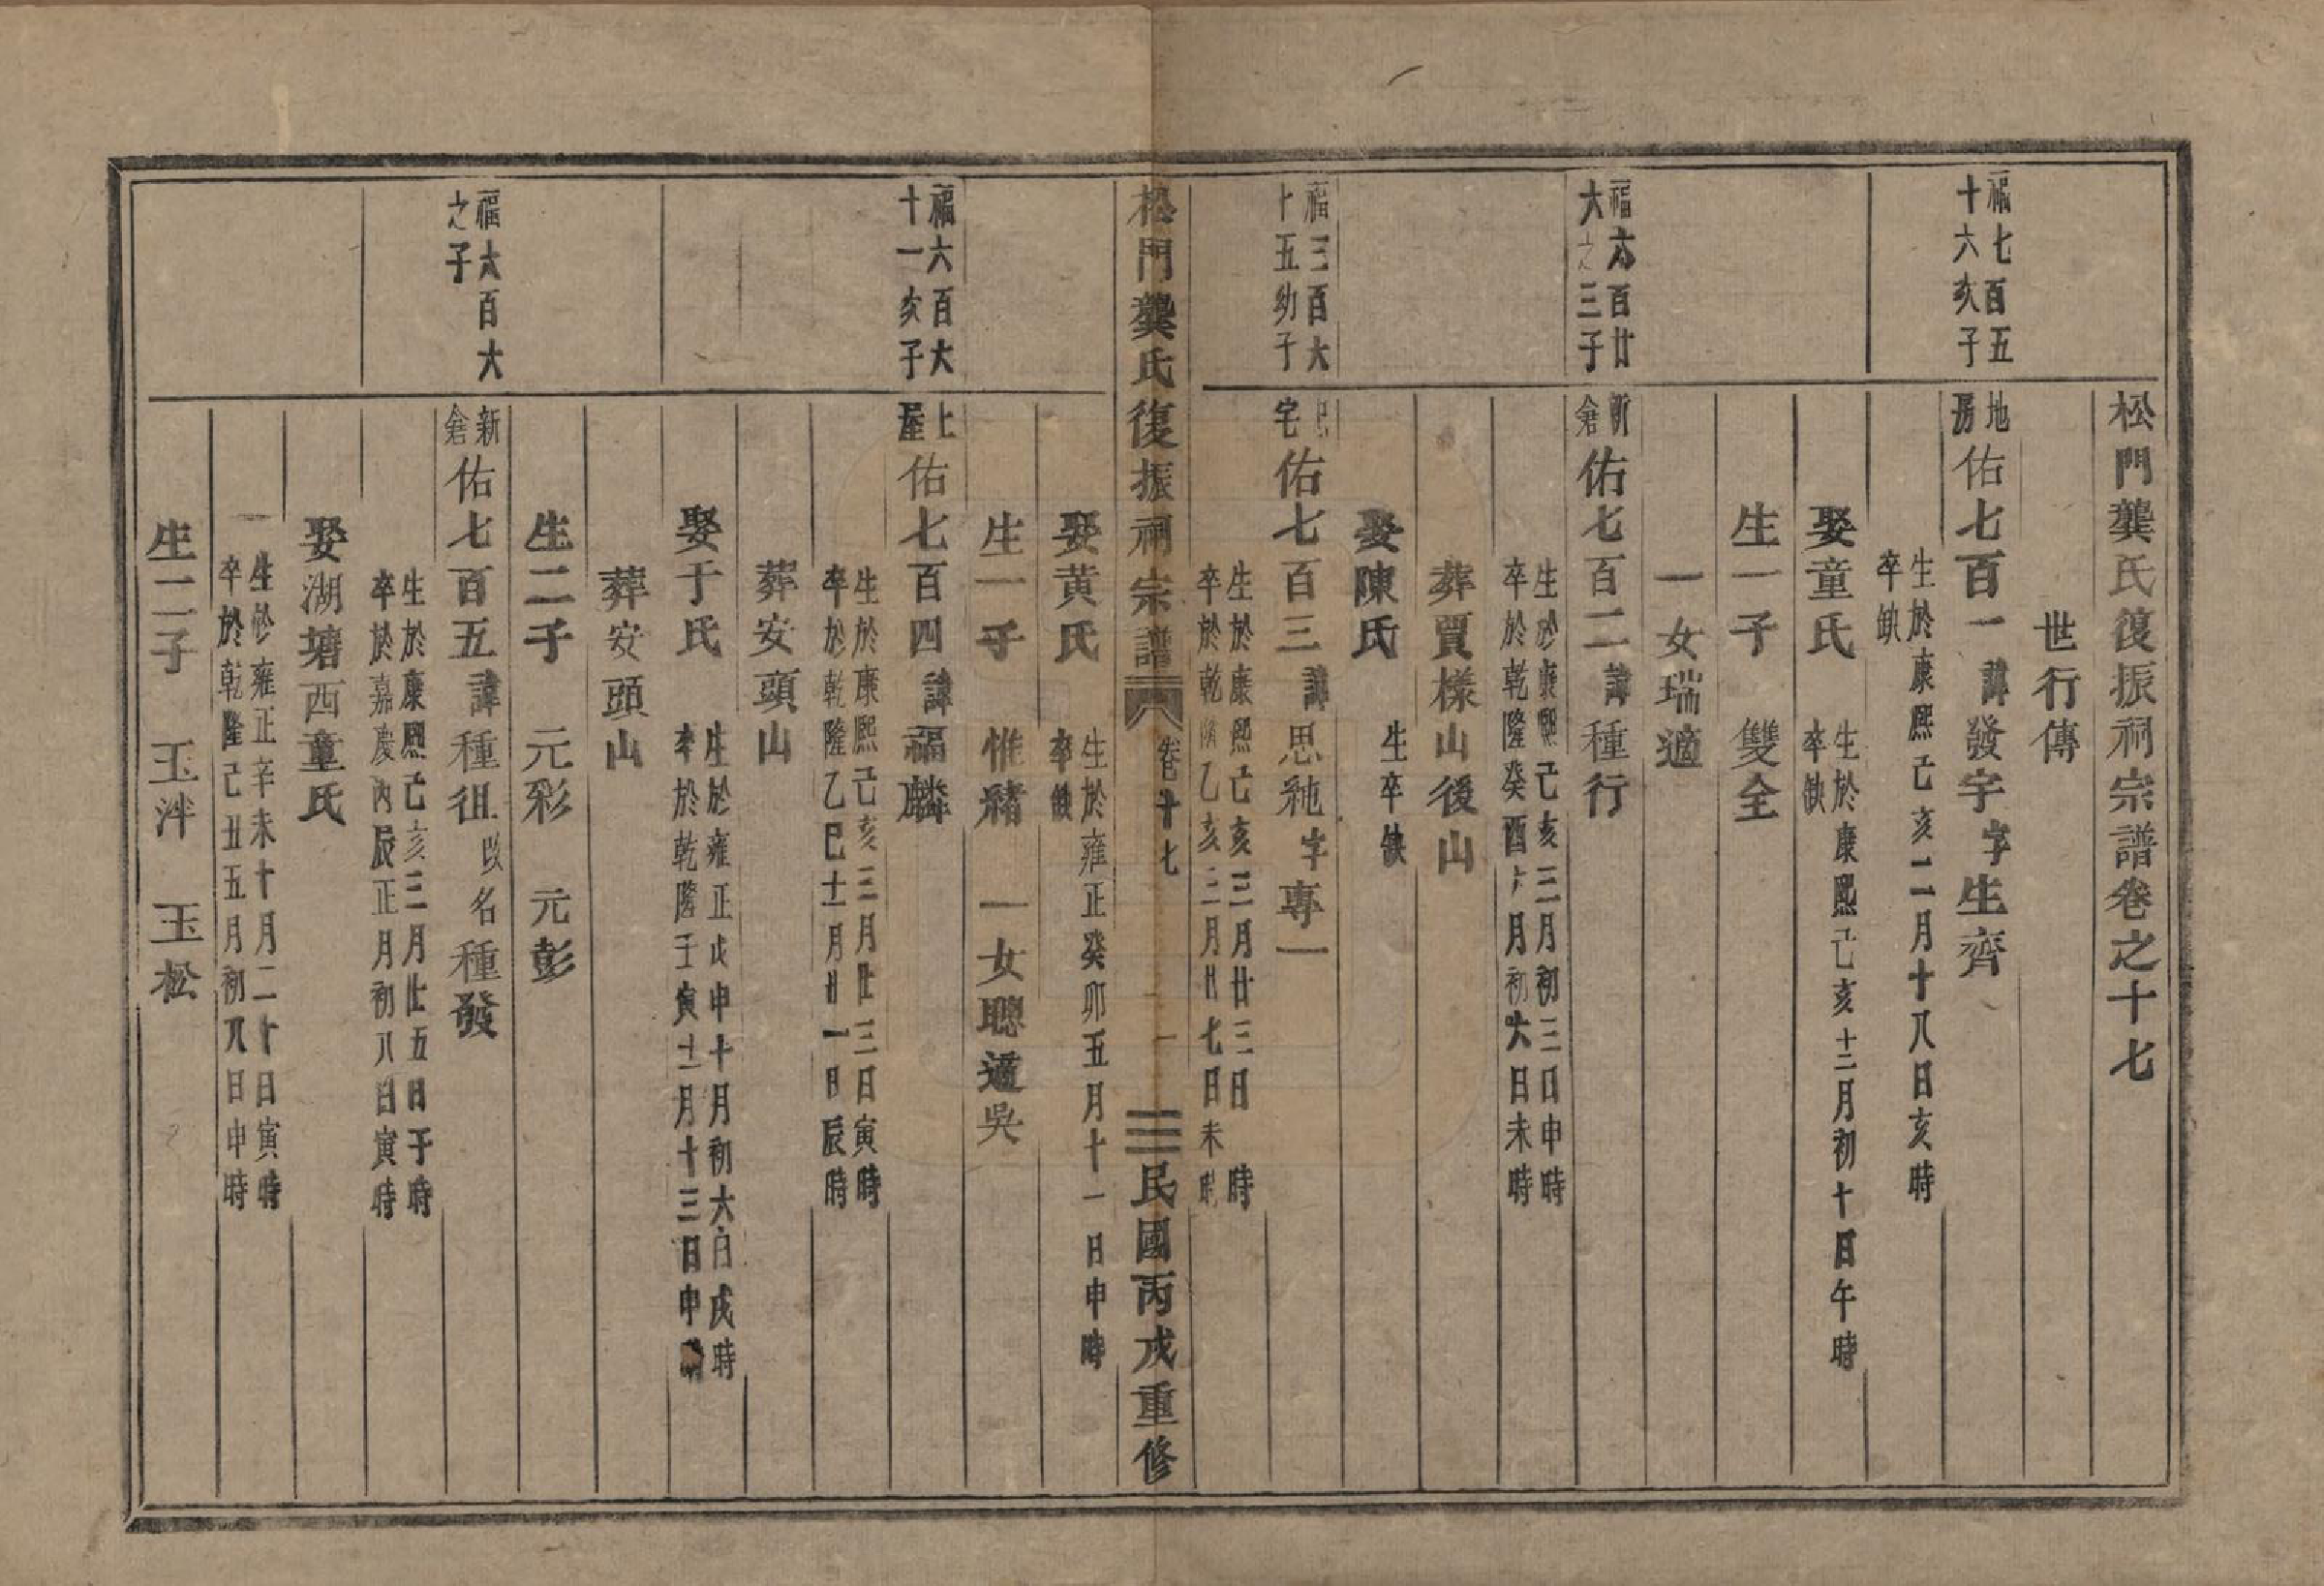 松門龔氏復振祠宗譜卷之十七
世行傳
福七百五
十六亥子
地
房
佑七百一諱發字字生齊
生於康熙己亥二月十八日亥時
卒缺
娶童氏
生於康熙己亥十二月初十日午時
卒缺
生一子 雙全
一女瑞適
福六百廿
六之三子
新
倉
佑七百二諱種行
生於康熙己亥三月初三日申時
卒於乾隆癸酉 月初六日未時
葬賈樣山後山
娶陳氏
生卒缺
福三百大
十五幼子
宅
佑七百三諱思 字專一
生於康熙己亥三月廿三日 時
卒於乾隆乙亥三月廿七日未時
松門龔氏復振祠宗譜
卷十七
一
民國丙戌重修
娶黃氏
生於雍正癸卯五月十一日申時
卒缺
生一子 惟緒 一女聰適吳
福六百大
十一亥子
上
屋
佑七百四諱福麟
生於康熙己亥三月廿三日寅時
卒於乾隆乙巳十一月廿一日辰時
葬安頭山
娶于氏
生於雍正戊申十月初六日戌時
卒於乾隆壬寅十二月十三日申
葬安頭山
生二子 元彩 元彭
福六百大
之子
新
倉
佑七百五諱種徂以名種發
生於康熙己亥三月廿五日子時
卒於嘉慶丙辰正月初八日寅時
娶湖塘西童氏
生於雍正辛未十月二十日寅時
卒於乾隆己丑五月初八日申時
生二子 玉泮 玉松